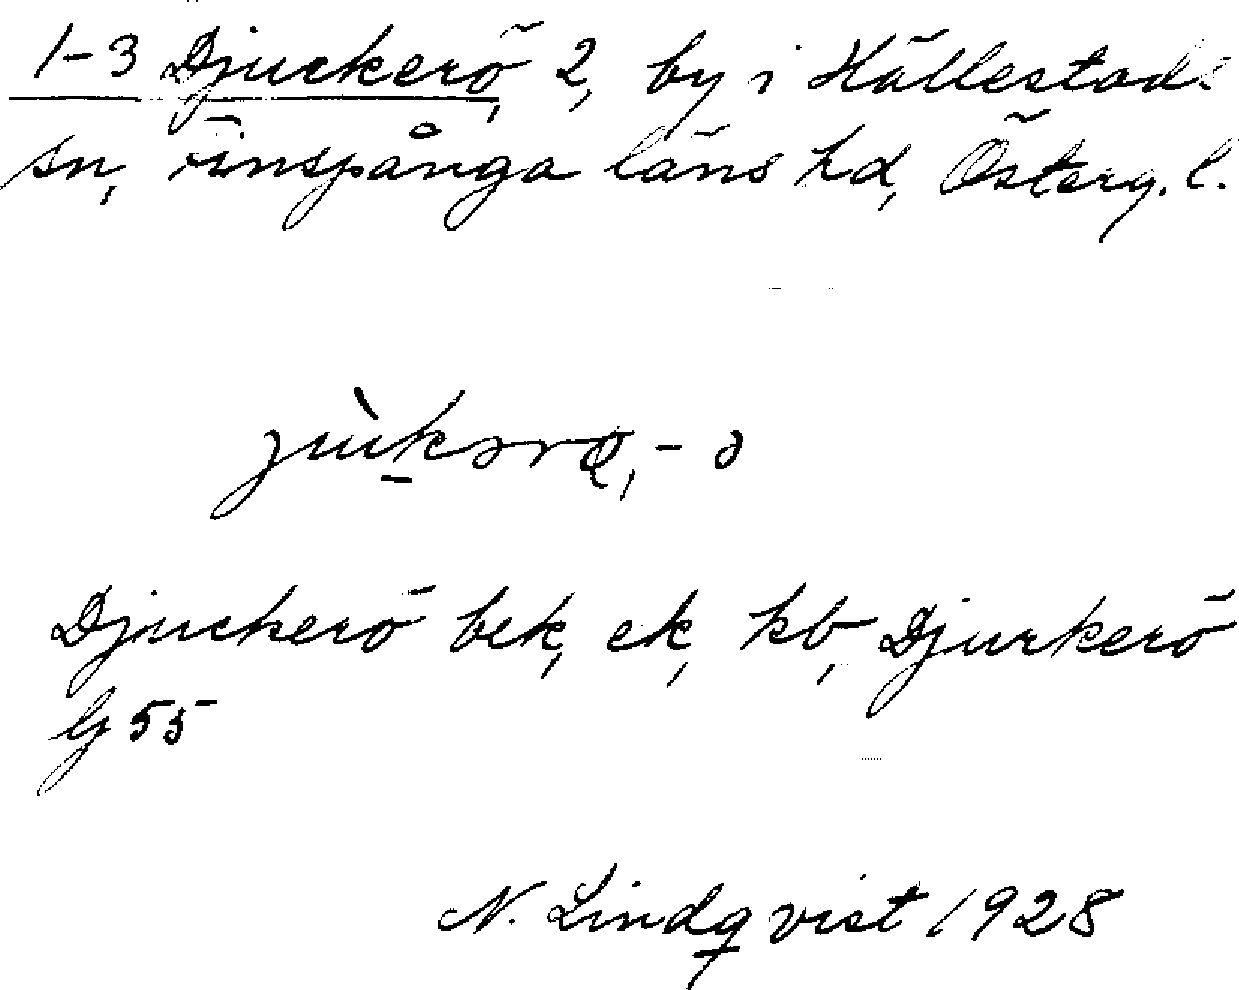 1-3 Djuckerö 2, by i Hällestads
sn, Finspånga läns hd, Österg. l.
Djuckerö bek, ek, kb, Djurkerö
G 55
N. Lindqvist 1928